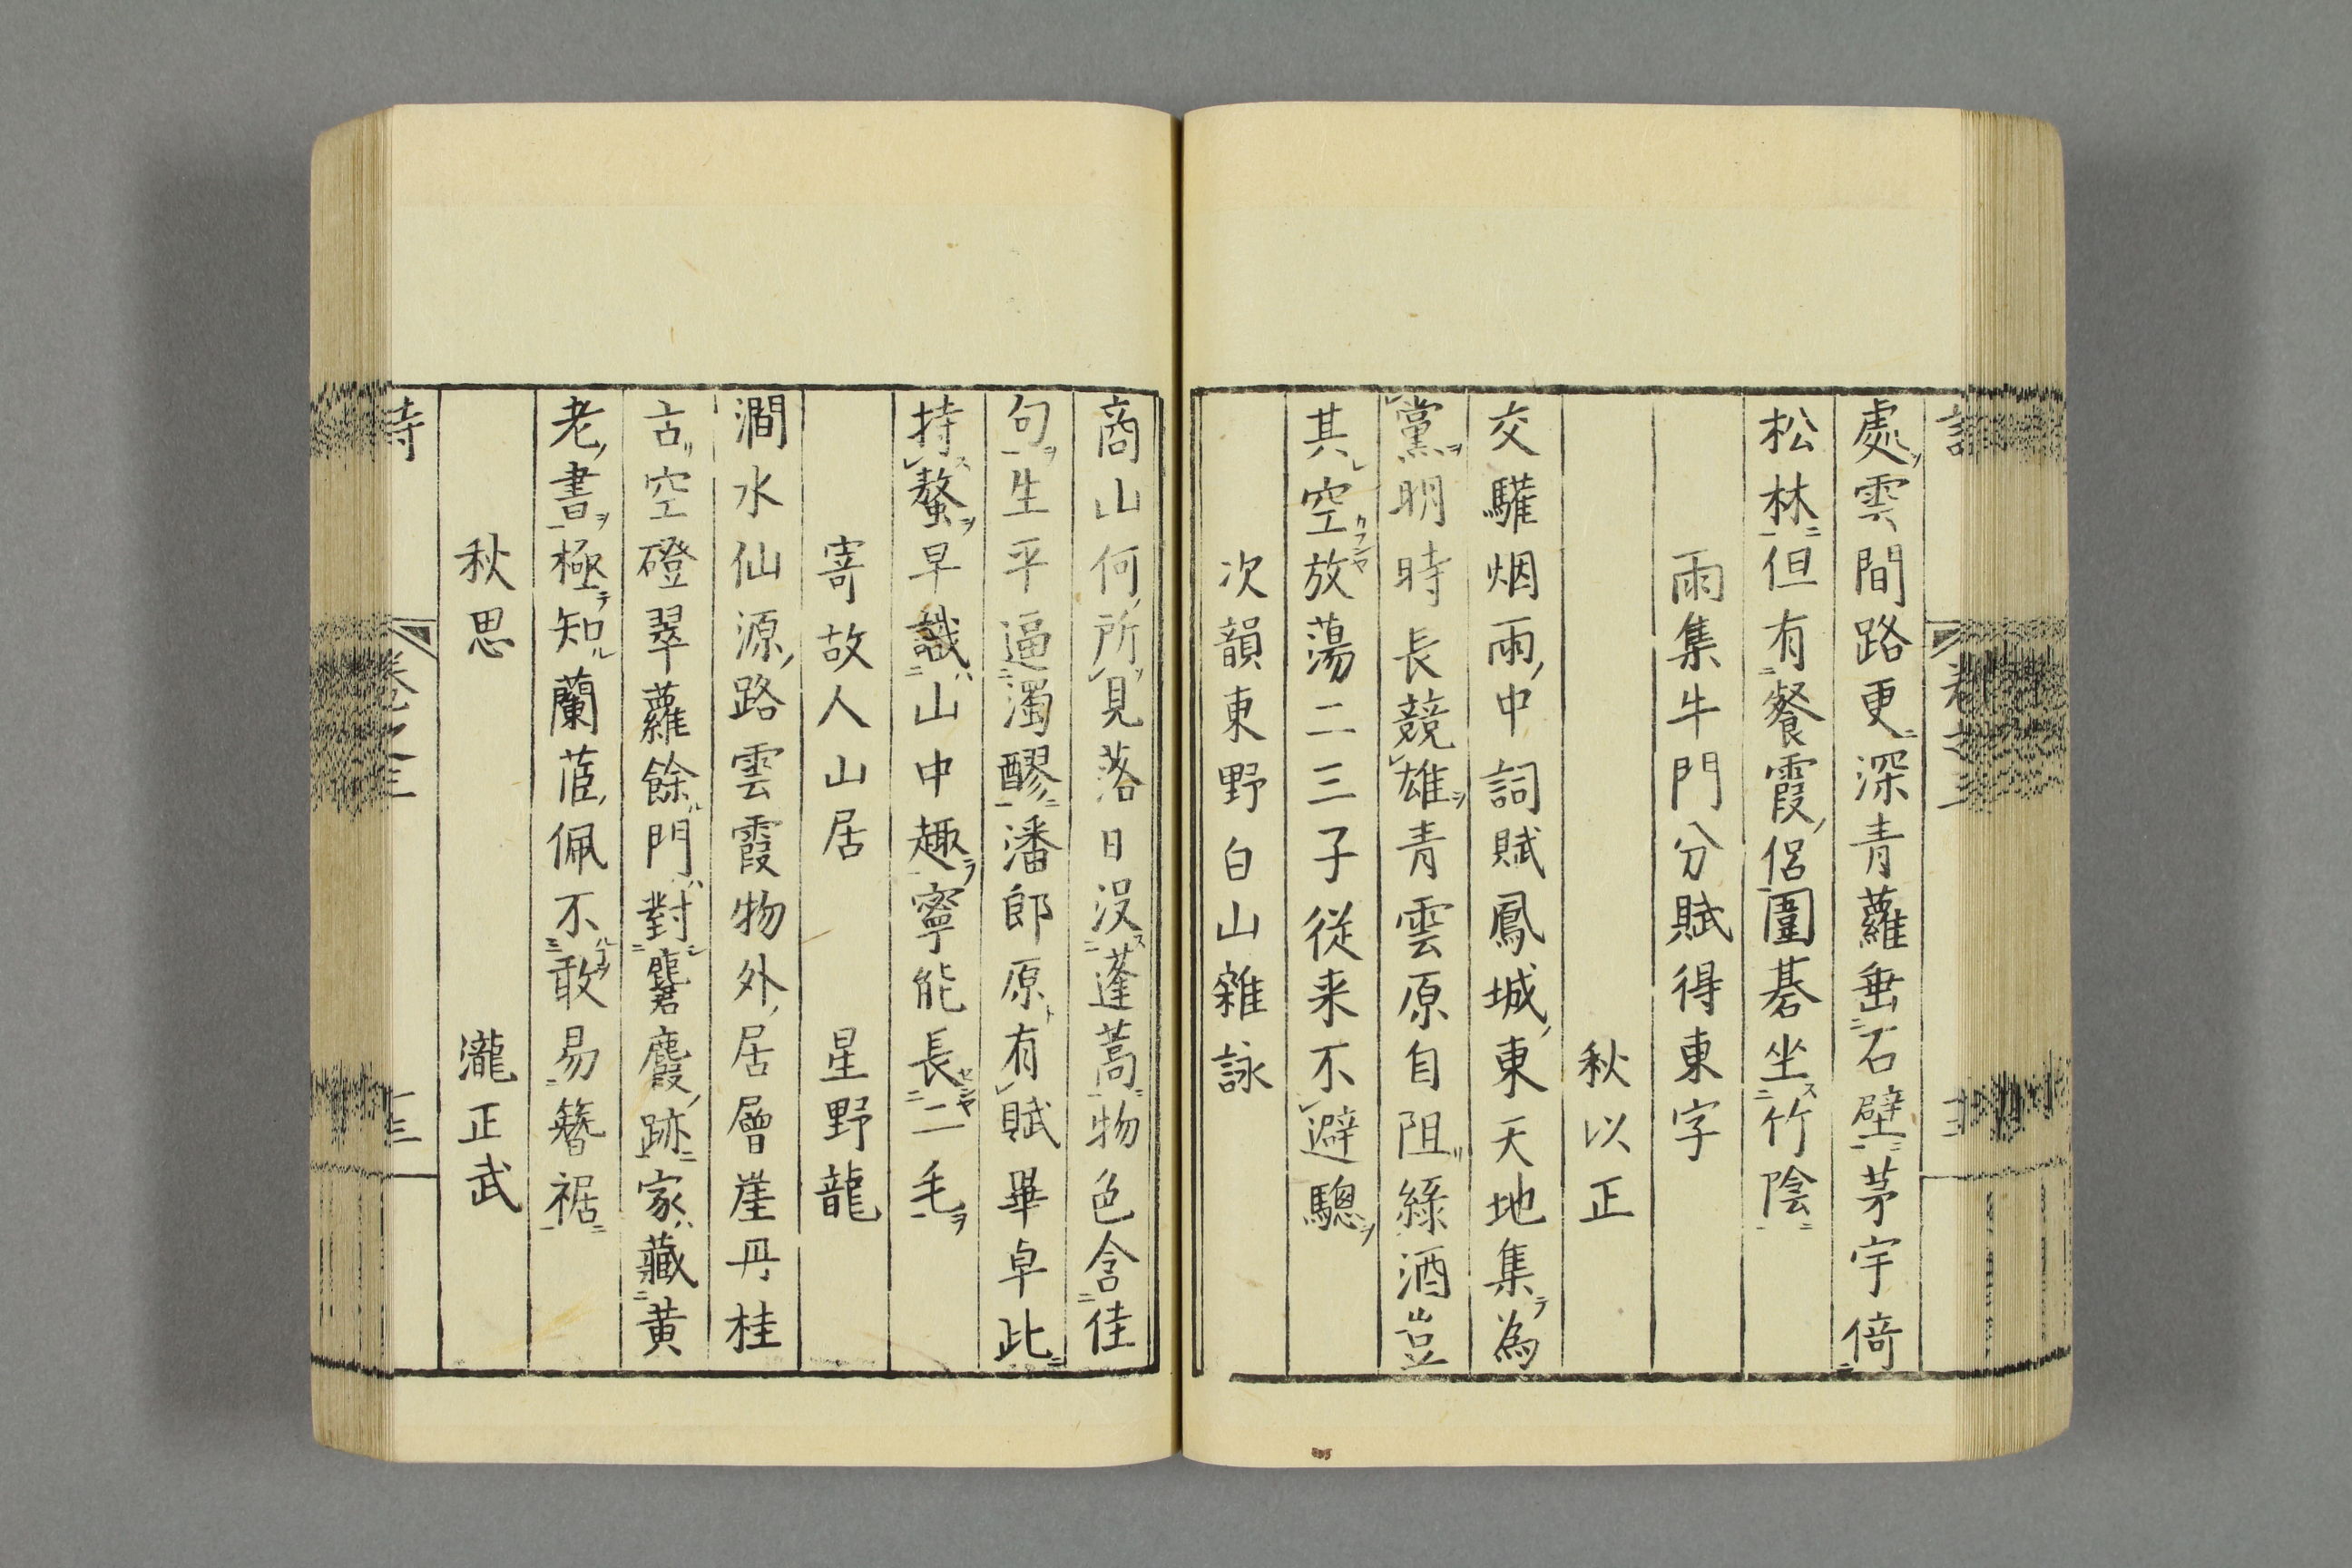 處雲間路更深青蘿垂石壁茅宇倚
松林但有餐霞侶圍碁坐竹陰
雨集牛門分賦得東字
秋以正
交驩烟雨中詞賦鳳城東天地集為
黨明時長競雄青雲原自阻綠酒豈
其空放蕩二三子從来不避驄
次韻東野白山雜詠
商山何所見落日没蓬蒿物色含佳
句生平逼濁醪潘郎原有賦畢卓此
持螯早識山中趣寧能長二毛
寄故人山居 星野龍
澗水仙源路雲霞物外居層崖丹桂
古空磴翠蘿餘門對麏麚跡家藏黄
老書極知蘭茝佩不敢易簪裾
秋思 瀧正武
詩 卷之三 十三